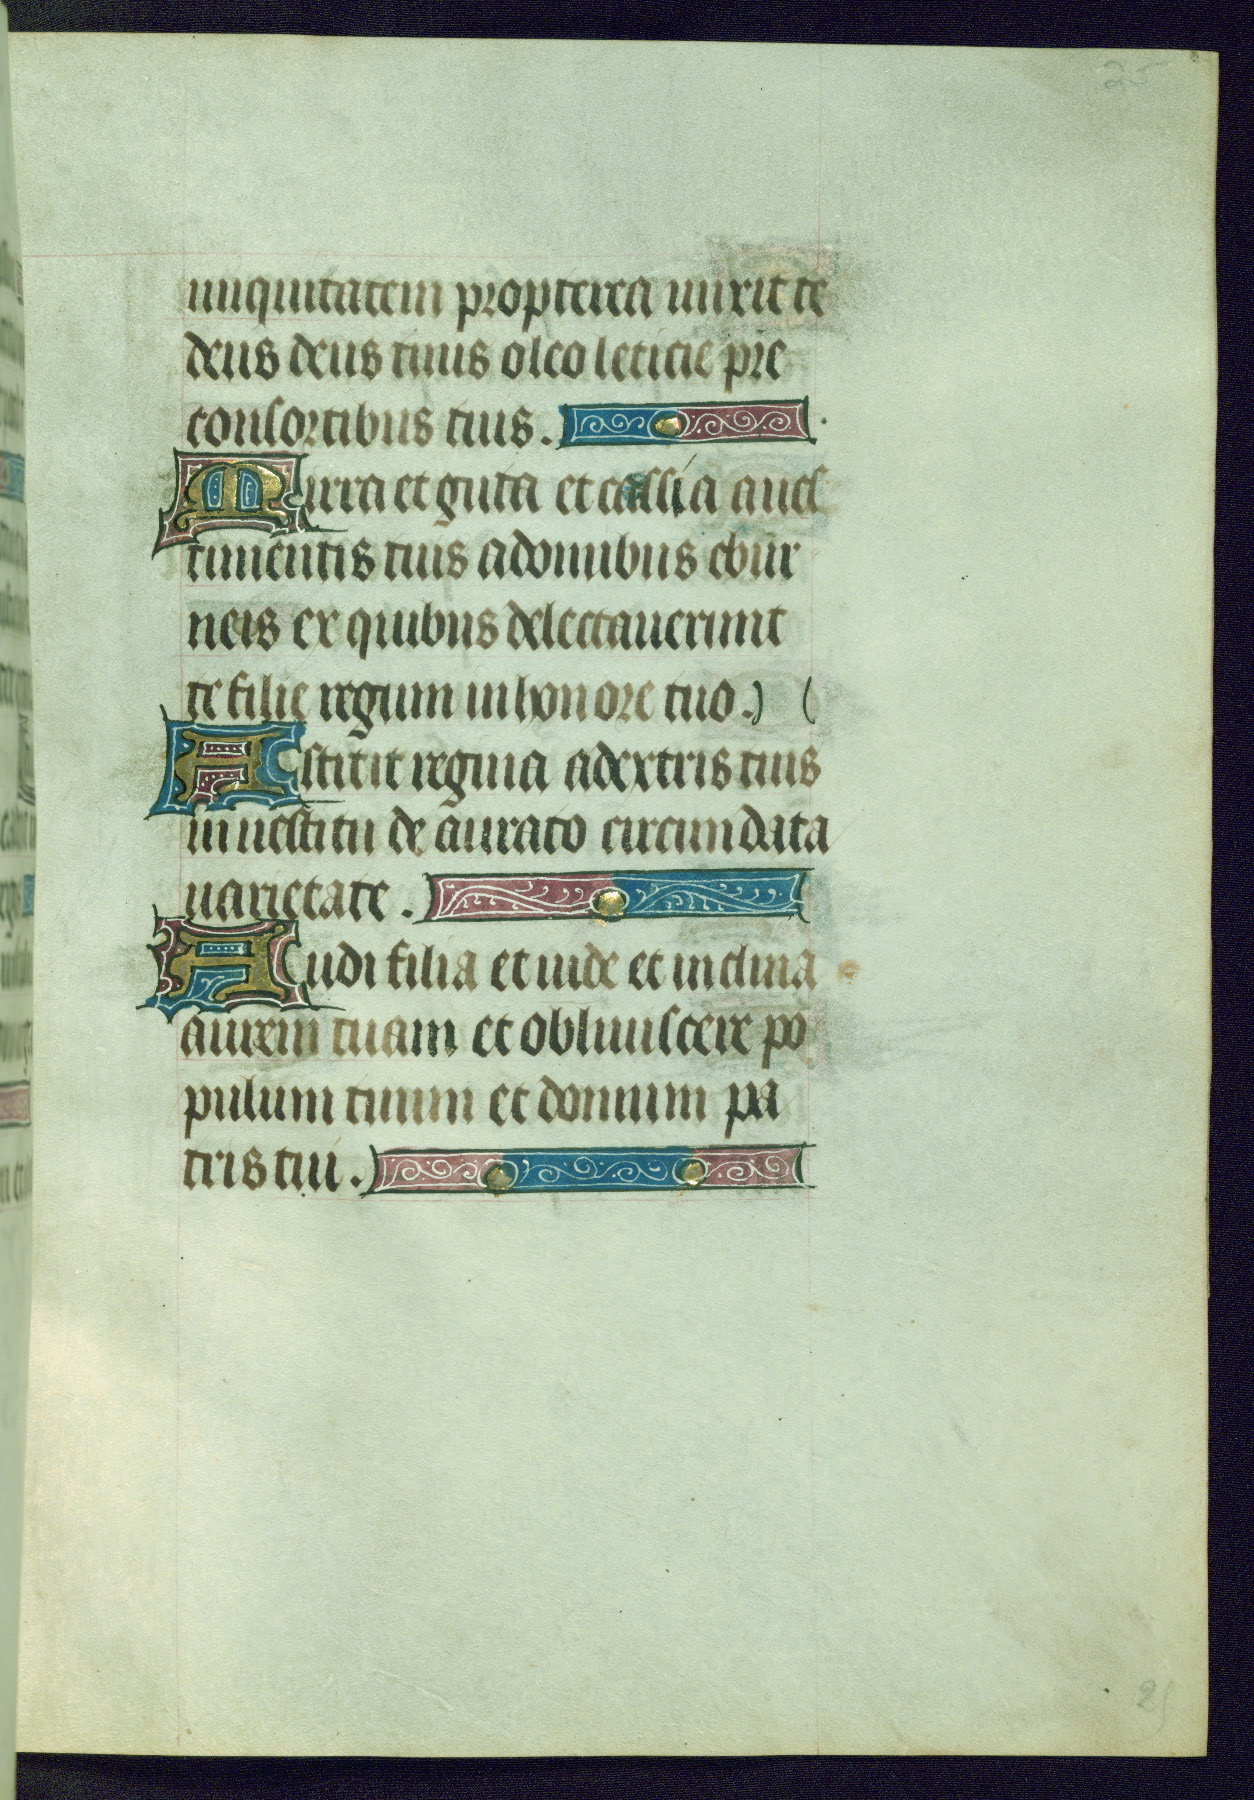 25
iniquitatem propterea unxit te
deus deus tuus oleo leticie pre
consortibus tuis.
Mirra et guta et cassia a ues
timentis tuis a domibus ebur
neis ex quibus delectauerunt
te filie regum in honore tuo.
Astitit regina a dextris tuis
in uestitu de aurato circundata
uarietate.
Audi filia et uide et inclina
aurem tuam et obliuiscere po
pulum tuum et domum pa
tris tui.
25